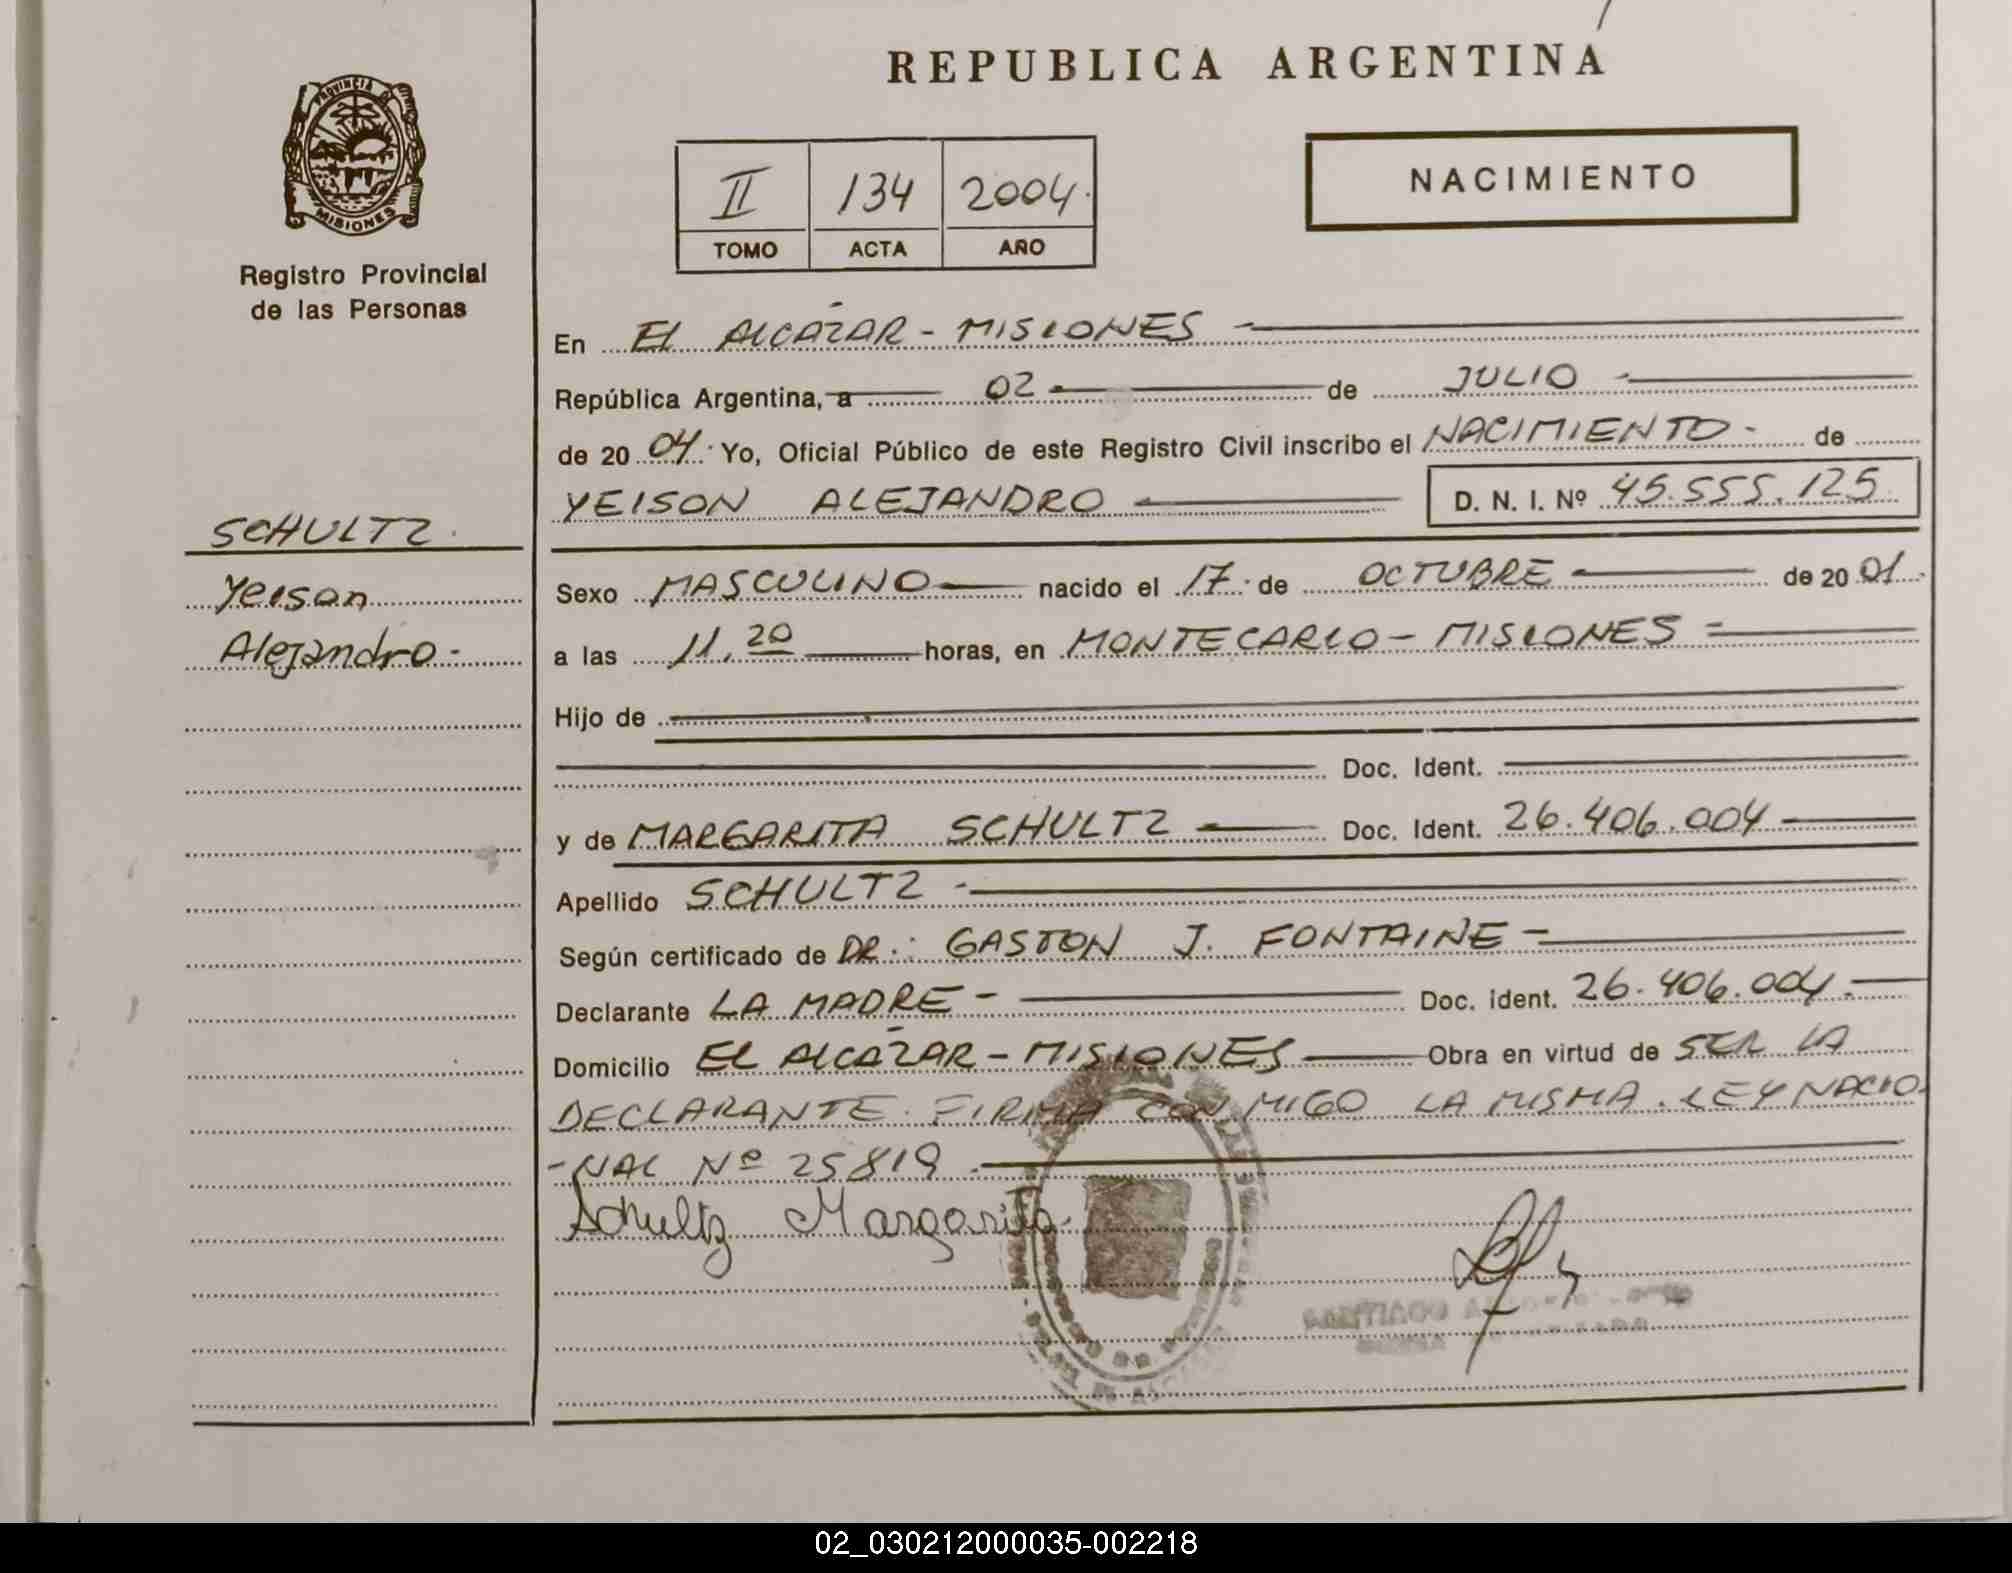 REPUBLICA ARGENTINA
PROVINCIA DE
MISIONES
Registro Provincial
de las Personas
II 134 2004.
TOMO ACTA AÑO
NACIMIENTO
En EL ALCÁZAR - MISIONES
República Argentina, a 02 de JULIO
de 20 04. Yo, Oficial Público de este Registro Civil inscribo el NACIMIENTO - de
YEISON ALEJANDRO D. N. I. Nº 45.555.125
SCHULTZ.
Yeison
Alejandro.-
Sexo MASCULINO nacido el 17. de OCTUBRE de 20 01.
a las 11,20 horas, en MONTECARLO - MISIONES -
Hijo de
Doc. Ident.
y de MARGARITA SCHULTZ Doc. Ident. 26.406.004
Apellido SCHULTZ -
Según certificado de DR.: GASTON J. FONTAINE -
Declarante LA MADRE - Doc. ident. 26.406.004.
Domicilio EL ALCÁZAR - MISIONES Obra en virtud de SER LA
DECLARANTE. FIRMA CON MIGO LA MISMA. LEY NACIO-
-NAL Nº 25819.
Schultz Margarita.
02_030212000035-002218